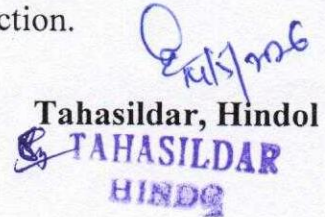 ction.
Tahasildar, Hindol
TAHASILDAR